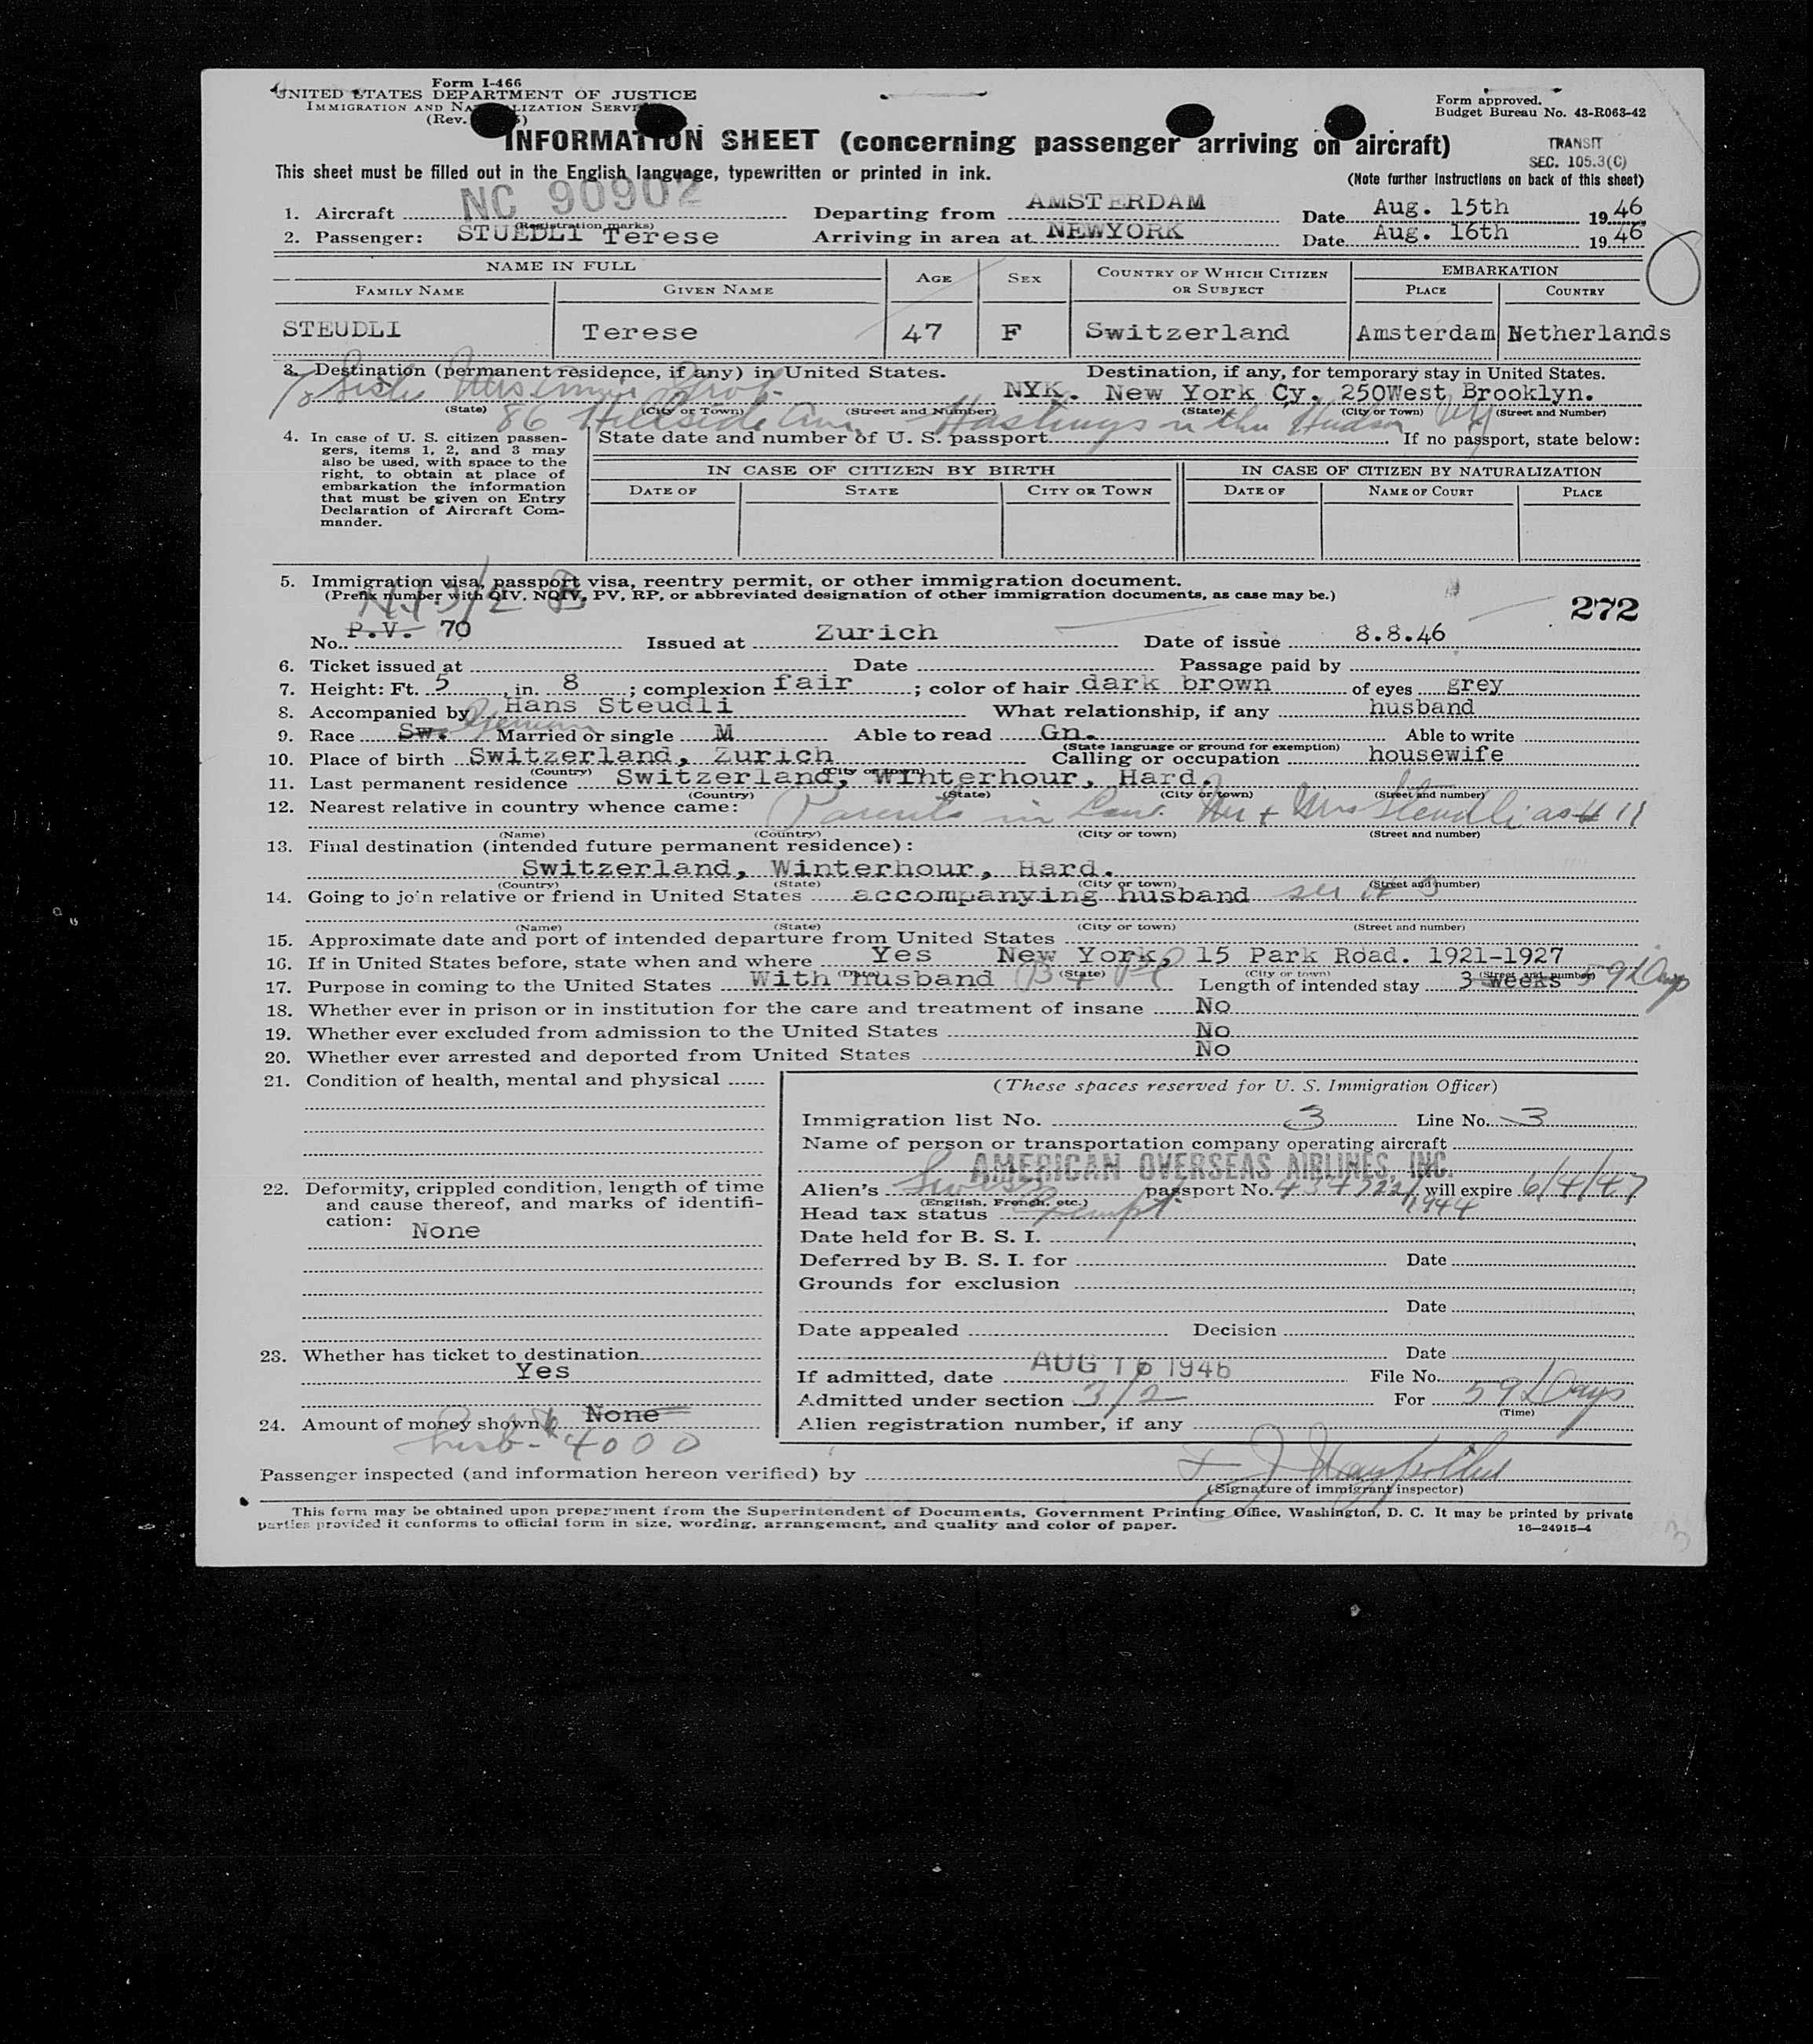 Form I-466
UNITED STATES DEPARTMENT OF JUSTICE
IMMIGRATION AND NATURALIZATION SERVICE
(Rev.
Form approved.
Budget Bureau No. 43-R063-42
INFORMATION SHEET (concerning passenger arriving on aircraft)
TRANSIT
SEC. 105.3(C)
This sheet must be filled out in the English language, typewritten or printed in ink.
(Note further instructions on back of this sheet)
1. Aircraft NC 90902 Departing from AMSTERDAM Date Aug. 15th 1946
(Registration marks)
2. Passenger: STUEDLI Terese Arriving in area at NEWYORK Date Aug. 16th 1946
NAME IN FULL AGE SEX COUNTRY OF WHICH CITIZEN OR SUBJECT EMBARKATION
FAMILY NAME GIVEN NAME PLACE COUNTRY
STEUDLI Terese 47 F Switzerland Amsterdam Netherlands
3. Destination (permanent residence, if any) in United States. Destination, if any, for temporary stay in United States.
Sister Mrs NYK. New York Cy. 250West Brooklyn.
(State) (City or Town) (Street and Number) (State) (City or Town) (Street and Number)
86 Hillside Ave Hastings n the Hudson NY
4. In case of U. S. citizen passengers, items 1, 2, and 3 may also be used, with space to the right, to obtain at place of embarkation the information that must be given on Entry Declaration of Aircraft Commander.
State date and number of U. S. passport If no passport, state below:
IN CASE OF CITIZEN BY BIRTH IN CASE OF CITIZEN BY NATURALIZATION
DATE OF STATE CITY OR TOWN DATE OF NAME OF COURT PLACE
5. Immigration visa, passport visa, reentry permit, or other immigration document.
(Prefix number with QIV, NQIV, PV, RP, or abbreviated designation of other immigration documents, as case may be.)
3/2
272
No. P.V. 70 Issued at Zurich Date of issue 8.8.46
6. Ticket issued at Date Passage paid by
7. Height: Ft. 5, in. 8; complexion fair; color of hair dark brown of eyes grey
8. Accompanied by Hans Steudli What relationship, if any husband
9. Race Sw. German Married or single M Able to read Gn. Able to write
(State language or ground for exemption)
10. Place of birth Switzerland, Zurich Calling or occupation housewife
(Country) (City or town)
11. Last permanent residence Switzerland, Winterhour, Hard.
(Country) (State) (City or town) (Street and number)
12. Nearest relative in country whence came: Parents in Law. Mr + Mrs Steudli as # 11
(Name) (Country) (City or town) (Street and number)
13. Final destination (intended future permanent residence):
Switzerland, Winterhour, Hard.
(Country) (State) (City or town) (Street and number)
14. Going to join relative or friend in United States accompanying husband see # 3
(Name) (State) (City or town) (Street and number)
15. Approximate date and port of intended departure from United States
16. If in United States before, state when and where Yes New York, 15 Park Road. 1921-1927
(Date) (State) (City or town) (Street and number)
17. Purpose in coming to the United States With Husband B + Pl Length of intended stay 3 weeks 59 Days
18. Whether ever in prison or in institution for the care and treatment of insane No
19. Whether ever excluded from admission to the United States No
20. Whether ever arrested and deported from United States No
21. Condition of health, mental and physical
22. Deformity, crippled condition, length of time and cause thereof, and marks of identification:
None
23. Whether has ticket to destination
Yes
24. Amount of money shown $ None
husb- $4000
(These spaces reserved for U. S. Immigration Officer)
Immigration list No. 3 Line No. 3
Name of person or transportation company operating aircraft
AMERICAN OVERSEAS AIRLINES, INC.
Alien's Swiss passport No. 434722/1944 will expire 6/4/47
(English, French, etc.)
Head tax status Exempt
Date held for B. S. I.
Deferred by B. S. I. for Date
Grounds for exclusion
Date
Date appealed Decision
Date
If admitted, date AUG 16 1946 File No.
Admitted under section 3/2 For 59 Days
(Time)
Alien registration number, if any
Passenger inspected (and information hereon verified) by
(Signature of immigrant inspector)
This form may be obtained upon prepayment from the Superintendent of Documents, Government Printing Office, Washington, D. C. It may be printed by private
parties provided it conforms to official form in size, wording, arrangement, and quality and color of paper.
16—24915-4
3